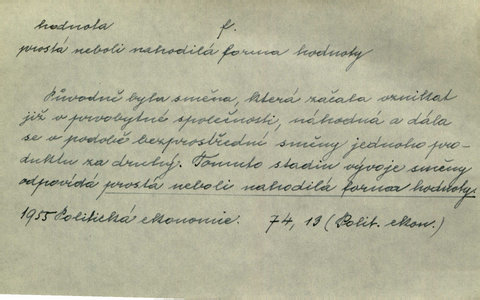 hodnota f.
prostá neboli nahodilá forma hodnoty
Původně byla směna, která začala vznikat
již v prvobytné společnosti, náhodná a dála
se v podobě bezprostřední směny jednoho pro-
duktu za druhý. Tomuto stadiu vývoje směny
odpovídá prostá neboli nahodilá forma hodnoty.
1955 Politická ekonomie. 74, 13 (Polit. ekon.)